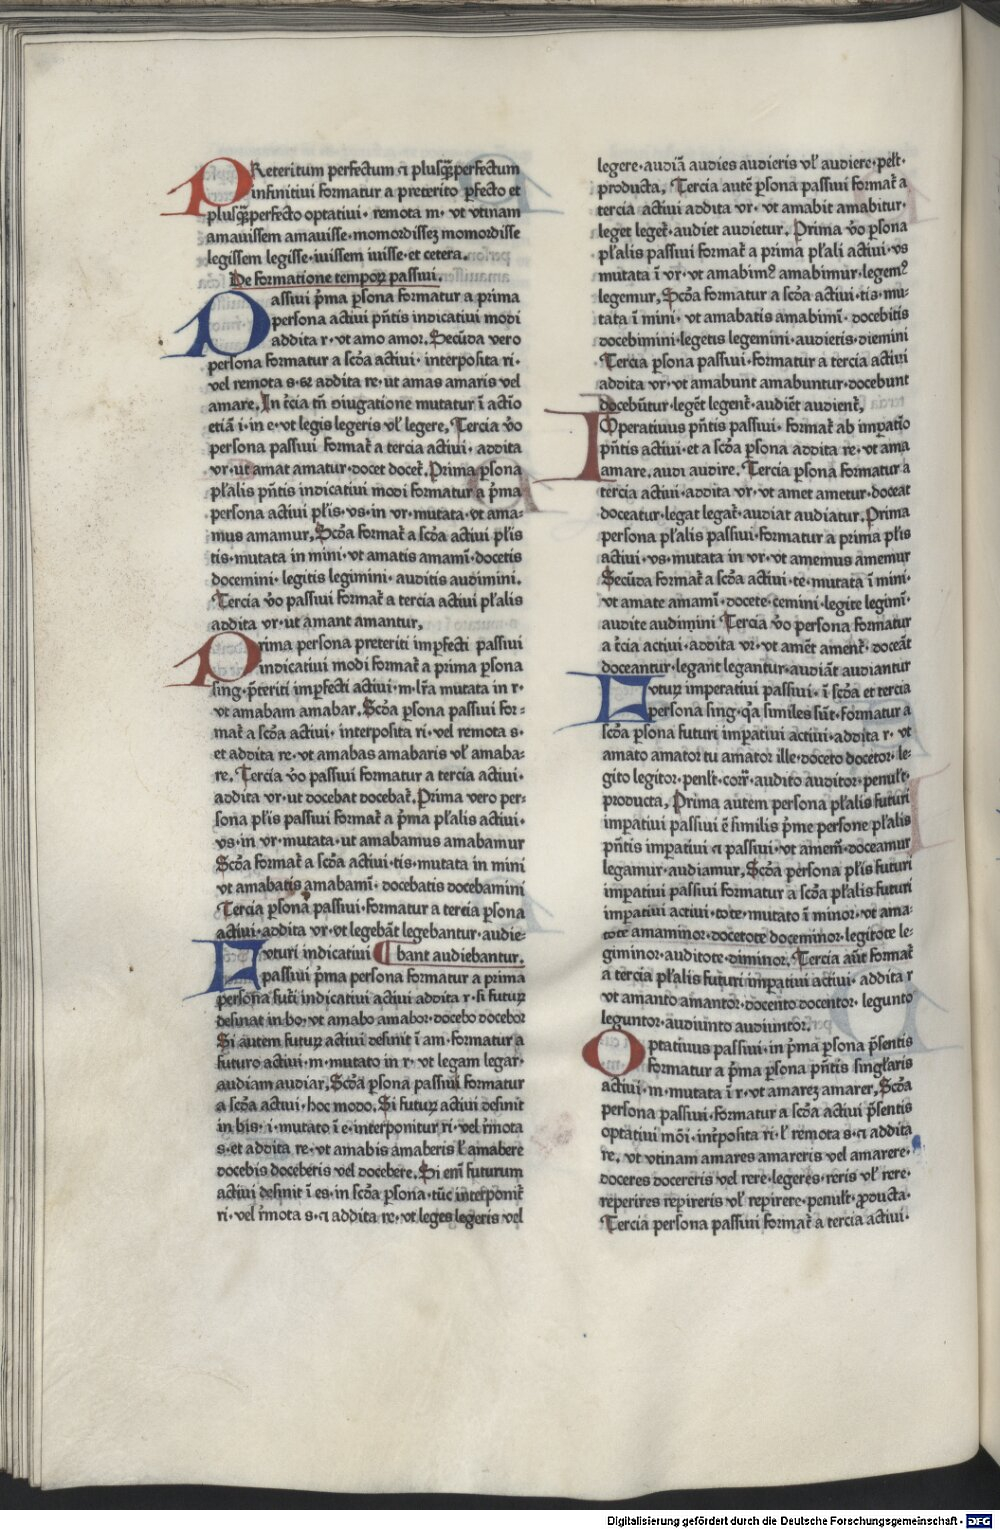 PReteritum perfectum ⁊ plusq̄ꝫperfectum
infinitiui formatur a preterito ꝑfecto et
plusq̄ꝫperfecto optatiui · remota m · vt vtinam
amauissem amauisse · momordissez momordisse
legissem legisse · iuissem iuisse · et cetera.
De formatione tempoꝝ passiui.
Passiui p̄ma ꝑsona formatur a prima
persona actiui pñtis indicatiui modi
addita r · vt amo amor. Secūda vero
persona formatur a scďa actiui · interposita ri ·
vel remota s · sz addita re · ut amas amaris vel
amare. In t̄cia tñ ꝯiugatione mutatur ī actīo
etiā i · in e · vt legis legeris vľ legere, Tercia v̊o
persona passiui format᷑ a tercia actiui · addita
vr · ut amat amatur · docet docet᷑. Prima ꝑsona
pľalis pñtis indicatiui modi formatur a p̄ma
persona actiui pľis · vs · in vr · mutata · vt ama=
mus amamur. Scďa format᷑ a scďa actiui pľis
tis · mutata in mini · vt amatis amamī · docetis
docemini · legitis legimini · auditis audimini.
Tercia v̊o passiui format᷑ a tercia actiui pľalis
addita vr · ut amant amantur,
Prima persona preteriti imꝑfecti passiui
indicatiui modi format᷑ a prima ꝑsona
sing · p̄teriti imꝑfecti actiui · m · lr̄a mutata in r ·
vt amabam amabar. Scďa ꝑsona passiui for=
mat᷑ a scďa actiui · interposita ri · vel remota s ·
et addita re · vt amabas amabaris vľ amaba=
re. Tercia v̊o passiui formatur a tercia actiui ·
addita vr · ut docebat docebat᷑. Prima vero per=
sona pľis passiui format᷑ a p̄ma pľalis actiui ·
vs · in vr · mutata · ut amabamus amabamur
Scďa format᷑ a scďa actiui · tis · mutata in mini
vt amabatis amabamī · docebatis docebamini
Tercia ꝑsona passiui · formatur a tercia ꝑsona
actiui · addita vr · vt legebāt legebantur · audie=
Futuri indicatiui ¶ bant audiebantur.
passiui p̄ma persona formatur a prima
persona futi᷑ indicatiui actiui addita r · si futuꝝ
desinat in bo · vt amabo amabor · docebo docebor
Si autem futuꝝ actiui desinit ī am · formatur a
futuro actiui · m · mutato in r · vt legam legar ·
audiam audiar. Scďa ꝑsona passiui formatur
a scďa actiui · hoc modo. Si futuꝝ actiui desinit
in bis · i · mutato ī e · interponitur ri · vel r̄mota
s · et addita re · vt amabis amaberis ľ amabere
docebis doceberis vel docebere. Si em̄ futurum
actiui desinit ī es · in scďa ꝑsona · tūc interponit᷑
ri · vel r̄mota s · ⁊ addita re · vt leges legeris vel
legere · audiā audies audieris vľ audiere · pēlt ·
producta, Tercia autē ꝑsona passiui format᷑ a
tercia actiui addita vr · vt amabit amabitur ·
leget leget᷑ · audiet audietur. Prima v̊o ꝑsona
pľalis passiui format᷑ a prima pľali actiui · vs
mutata ī vr · vt amabimꝰ amabimur · legemꝰ
legemur, Scďa formatur a scďa actiui · tis · mu=
tata ī mini · vt amabatis amabimī · docebitis
docebimini · legetis legemini · audietis · diemini
Tercia ꝑsona passiui · formatur a tercia actiui
addita vr · vt amabunt amabuntur · docebunt
docebūtur · legēt legent᷑ · audiēt audient᷑,
IMperatiuus pñtis passiui · format᷑ ab imꝑatīo
pñtis actiui · et a scďa ꝑsona addita re · vt ama
amare. audi audire. Tercia ꝑsona formatur a
tercia actiui · addita vr · vt amet ametur · doceat
doceatur · legat legat᷑ · audiat audiatur. Prima
persona pľalis passiui · formatur a prima pľis
actiui · vs · mutata in vr · vt amemus amemur
Secūda format᷑ a scďa actiui · te · mutata ī mini ·
vt amate amamī · docete · cemini · legite legimī ·
audite audimini Tercia v̊o persona formatur
a t̄cia actiui · addita vr · vt amēt ament᷑ · doceāt
doceantur · legant legantur · audiāt audiantur
Futuꝝ imperatiui passiui · ī scďa et tercia
persona sing · q̄a similes sūt · formatur a
scďa ꝑsona futuri imꝑatiui actiui · addita r · vt
amato amator tu amator ille · doceto docetor · le=
gito legitor · penlt̄ · corr̄ · audito auditor · penult̄ ·
producta, Prima autem persona pľalis futuri
imꝑatiui passiui ē similis p̄me persone pľalis
pñtis imꝑatiui ⁊ passiui · vt amem᷑ · doceamur
legamur · audiamur, Scďa persona pľis futuri
imꝑatiui passiui formatur a scďa pľalis futuri
imꝑatiui actiui · tote · mutato ī minor · vt ama=
tote amaminor · docetote doceminor · legitote le=
giminor · auditote · diminor. Tercia aūt format᷑
a tercia pľalis futuri imꝑatiui actiui · addita r
vt amanto amantor · docento docentor · legunto
leguntor · audiunto audiuntor.
Optatiuus passiui · in p̄ma ꝑsona p̄sentis
formatur a p̄ma ꝑsona pñtis singľaris
actiui · m · mutata ī r · vt amarez amarer, Scďa
persona passiui · formatur a scďa actiui p̄sentis
optatiui mōi · int᷑posita ri · ľ remota s · ⁊ addita
re. vt vtinam amares amareris vel amarere ·
doceres docereris vel rere · legeres · reris vľ rere ·
reperires repireris vľ repirere · penult̄ · ꝓducta ·
Tercia persona passiui format᷑ a tercia actiui ·
Digitalisierung gefördert durch die Deutsche Forschungsgemeinschaft · DFG